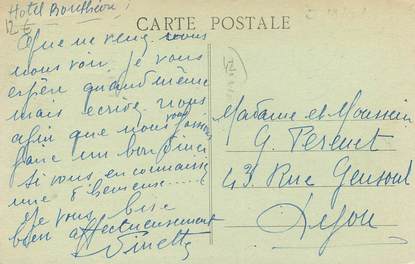 Hotel Bouthéon
12 €
CARTE POSTALE
Que ne venez vous
nous voir je vous
espère quand même
mais écrivez nous
afin que nous
faire un bon dîner
si vous en connaissez
une d'heureuse....
Je vous bise
bien affectueusement
Ninette
Madame et Monsieur
G. Perenet
43 Rue Gensoul
Lyon